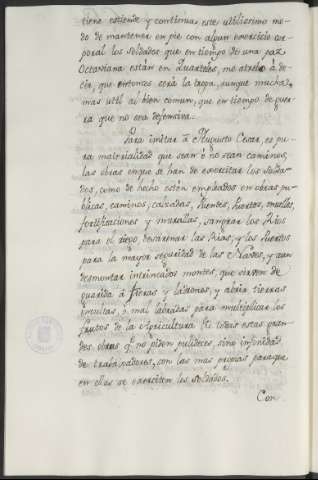 tiene estiende y continua este utilissimo mo-
do de mantener en pie con algun exercicio cor-
poral los soldados que en tiempo de una paz
Octaviana están en Quarteles, me atrebo à de-
cir, que entonces será la tropa, aunque mucha,
mas util al bien comun, que en tiempo de guer-
ra que no sea defensiva.
Para imitar à Augusto Cesar, es pu-
ra materialidad que sean ò no sean caminos,
las obras en que se han de exercitar los solda-
dos, como de hecho están empleados en obras pu-
blicas, caminos, calzadas, Puentes, Puertos, muelles,
fortificaciones y murallas, sangrar los Rios
para el riego, desarenar las Rias, y los Puertos
para la mayor seguridad de las Naves, y aun
desmontar intrincados montes, que sirven de
guarida à Fieras y ladrones, y abrir tierras
incultas, ò mal labradas para multiplicar los
frutos de la Agricultura. Ni todas estas gran-
des obras qe. no piden pulideces, sino infinidad
de trabajadores, son las mas propias para que
en ellas se exerciten los soldados.
Con